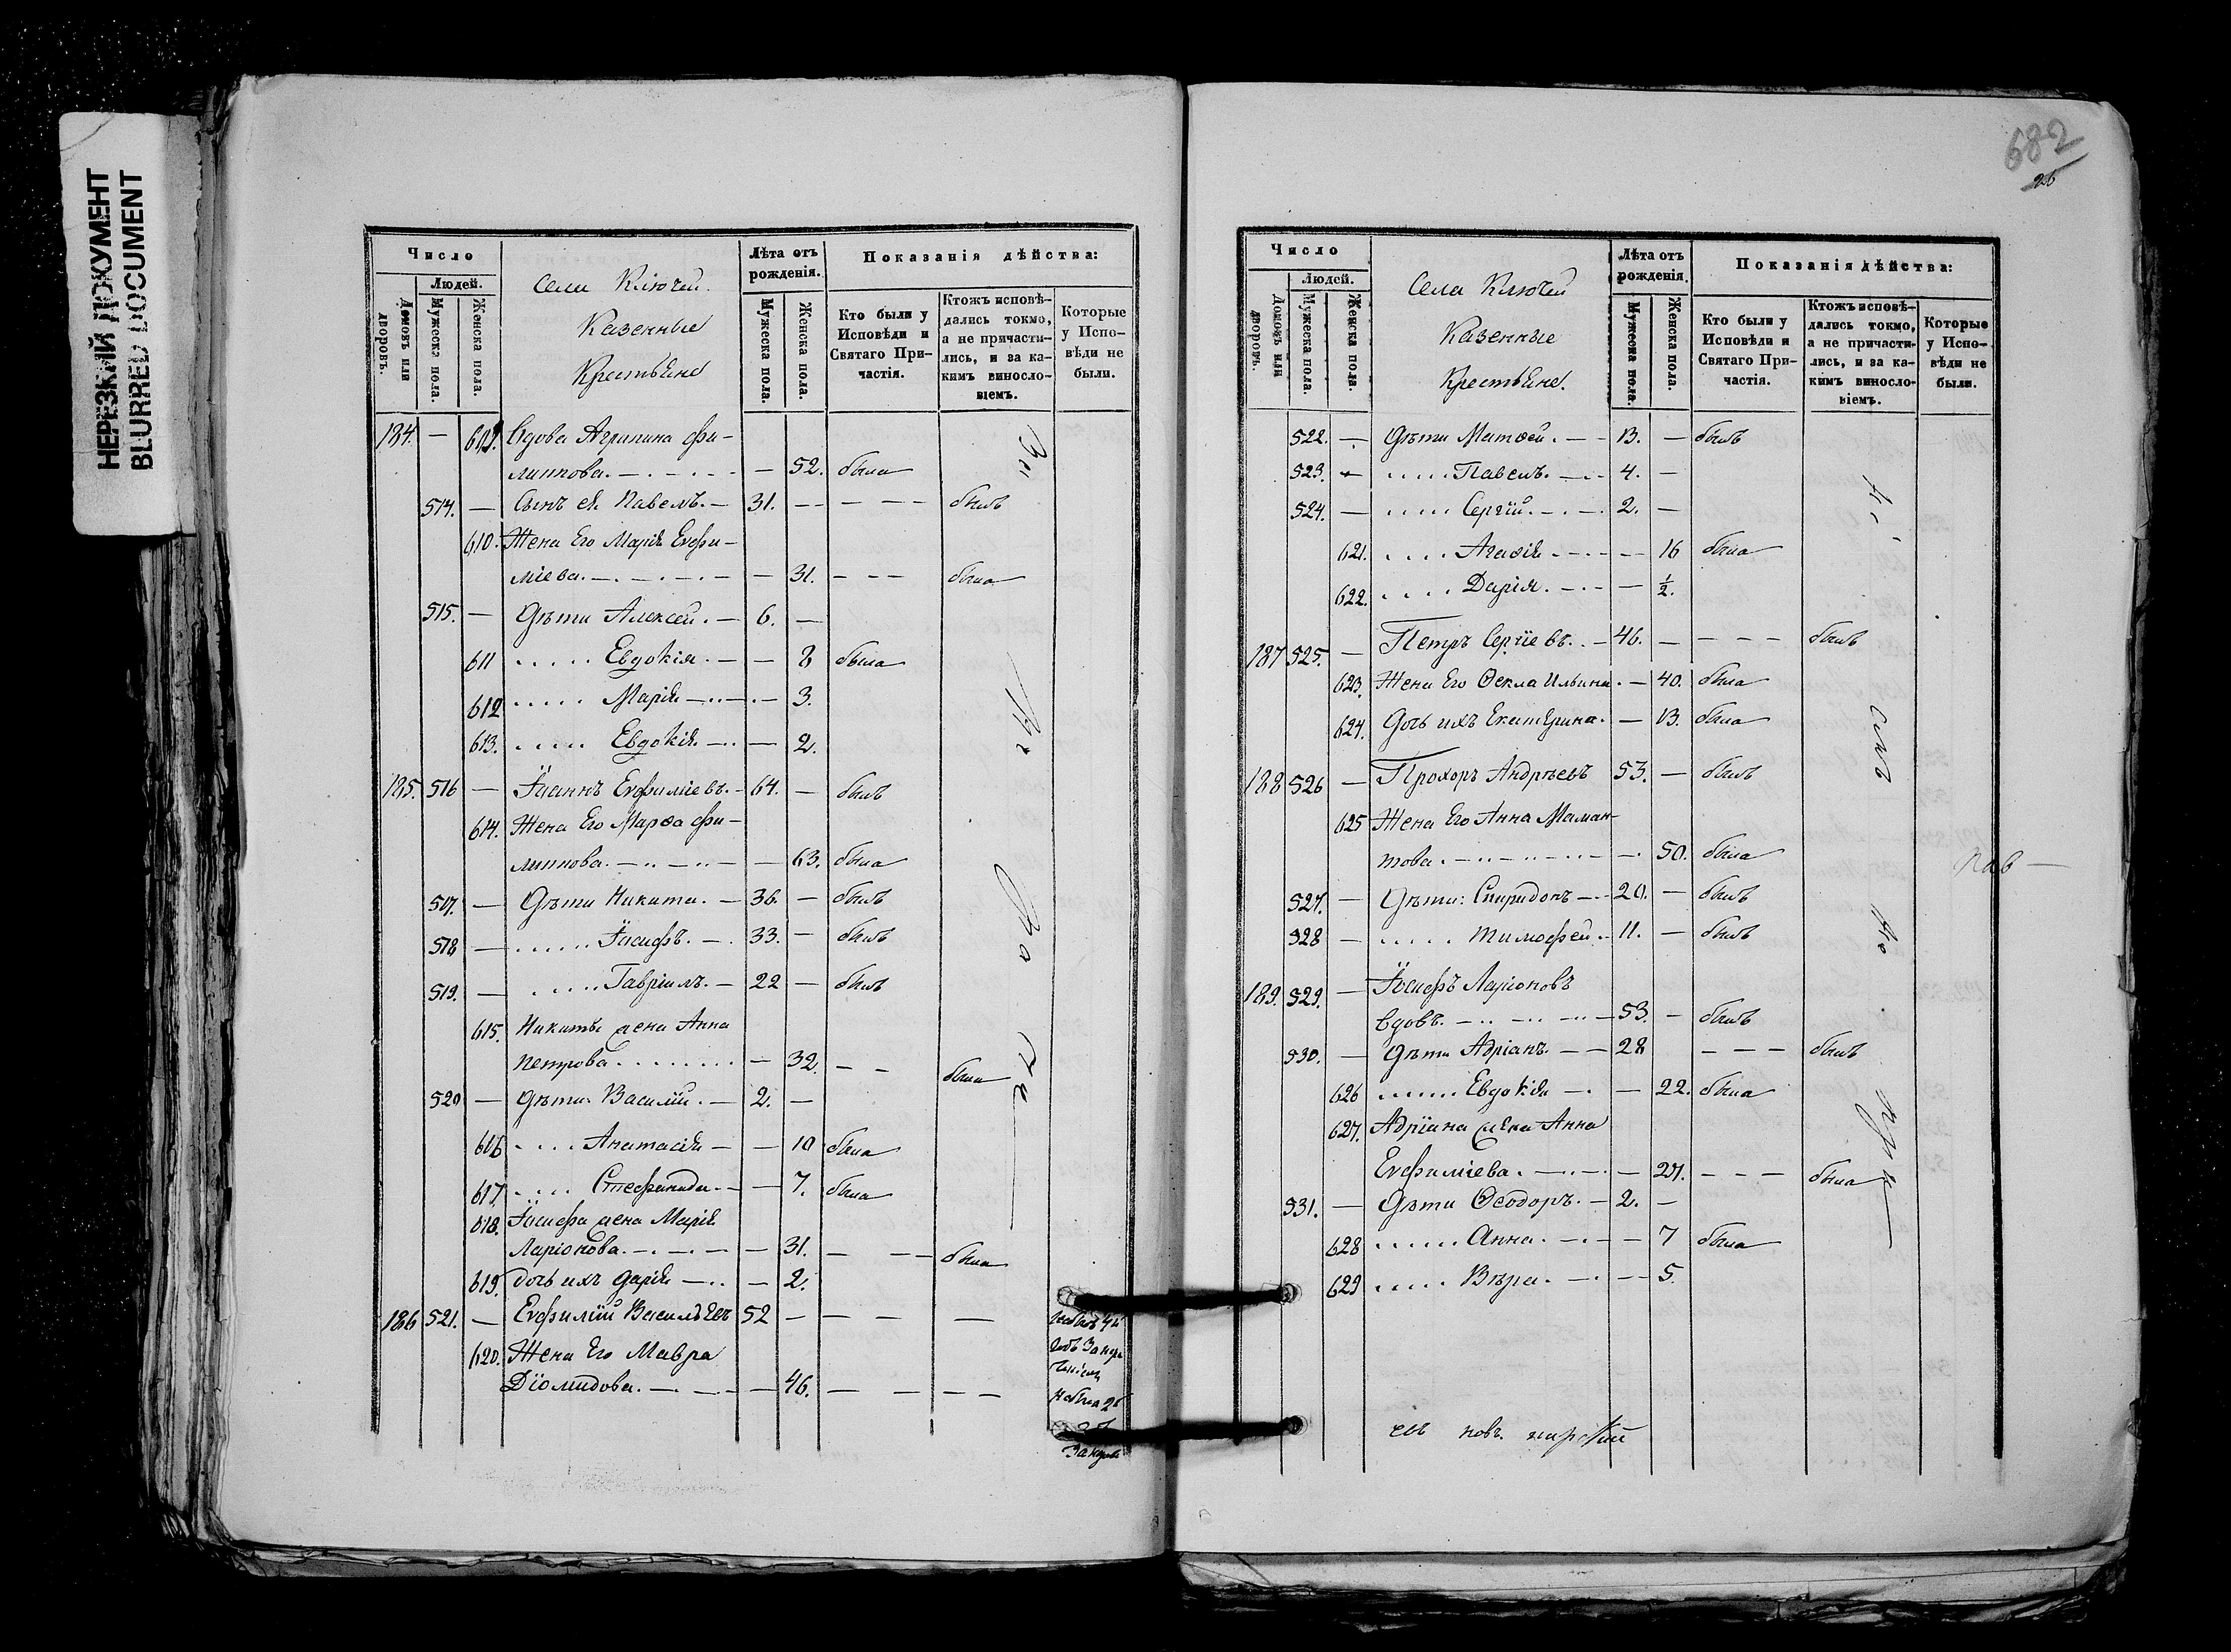 НЕРЕЗКИЙ ДОКУМЕНТ
BLURRED DOCUMENT
Число
Людей.
Домовъ или дворовъ.
Мужеска пола.
Женска пола.
Села Ключей
Казенные
Крестьяне
Лѣта отъ рожденія.
Мужеска пола.
Женска пола.
Показанія дѣйства:
Кто были у Исповѣди и Святаго Причастія.
Ктожъ исповѣдались токмо, а не причастились, и за какимъ винословіемъ.
Которые у Исповѣди не были.
184. — 609. Вдова Агрипина Фи-
липпова. — 52. была
514. — Сынъ ея Павелъ. — 31. — — был
610. Жена Его Марія Евфи-
міева. — — 31. — — — была
515. — Дѣти Алексей. — 6. —
611 Евдокія. — — 8 была
612 Марія — 3.
613. Евдокія — — 2.
185. 516 — Іоаннъ Евфиміевъ. — 64. — былъ
614. Жена Его Марѳа Фи-
липпова. — — 63. была
517. — Дѣти Никита. — 36. — былъ
518 — Іосифъ. — 33. — былъ
519. — Гавріилъ. — 22 — былъ
615. Никиты жена Анна
Петрова — 32. — — была
520 — Дѣти Василій. — 2. —
616 Анатасія — — 10 была
617 Стефанида. — — 7. была
618. Іосифа жена Марія
Ларіонова. — — 31. — — была
619. дочь ихъ Дарія — — 2.
186 521. — Евфимій Васильевъ 52 — — —
620. Жена Его Мавра
Діомидова. — — 46. — — — —
682
26
Число
Людей.
Домовъ или дворовъ.
Мужеска пола.
Женска пола.
Села Ключей
Казенные
Крестьяне.
Лѣта отъ рожденія.
Мужеска пола.
Женска пола.
Показанія дѣйства:
Кто были у Исповѣди и Святаго Причастія.
Ктожъ исповѣдались токмо, а не причастились, и за какимъ винословіемъ.
Которые у Исповѣди не были.
522. — Дѣти Матѳей. — 13. — былъ
523. — Павелъ. — 4. —
524. — Сергій. — 2. —
621. Агаѳія — — 16 была
622. Дарія. — — ½.
187 525. — Петръ Сергіевъ. — 46. — — — — былъ
623. Жена Его Ѳекла Ильина. — 40. была
624. Дочь ихъ Екатерина. — 13. была
188 526 — Прохоръ Андрѣевъ 53. — былъ
625 Жена Его Анна Маман-
това. — — 50. была
527. — Дѣти: Спиридонъ — 20. — былъ
528 — Тимофей. — 11. — былъ
189. 529. — Іосифъ Ларіоновъ
вдовъ. — 53. — былъ
530. — Дѣти Адріанъ. — 28 — — — былъ
626 Евдокія — — 22. была
627. Адріана жена Анна
Евфиміева. — — 27. — — — была
531. — Дѣти Ѳеодоръ. — 2. —
628 Анна. — — 7 была
629 Вѣра. — — 5.